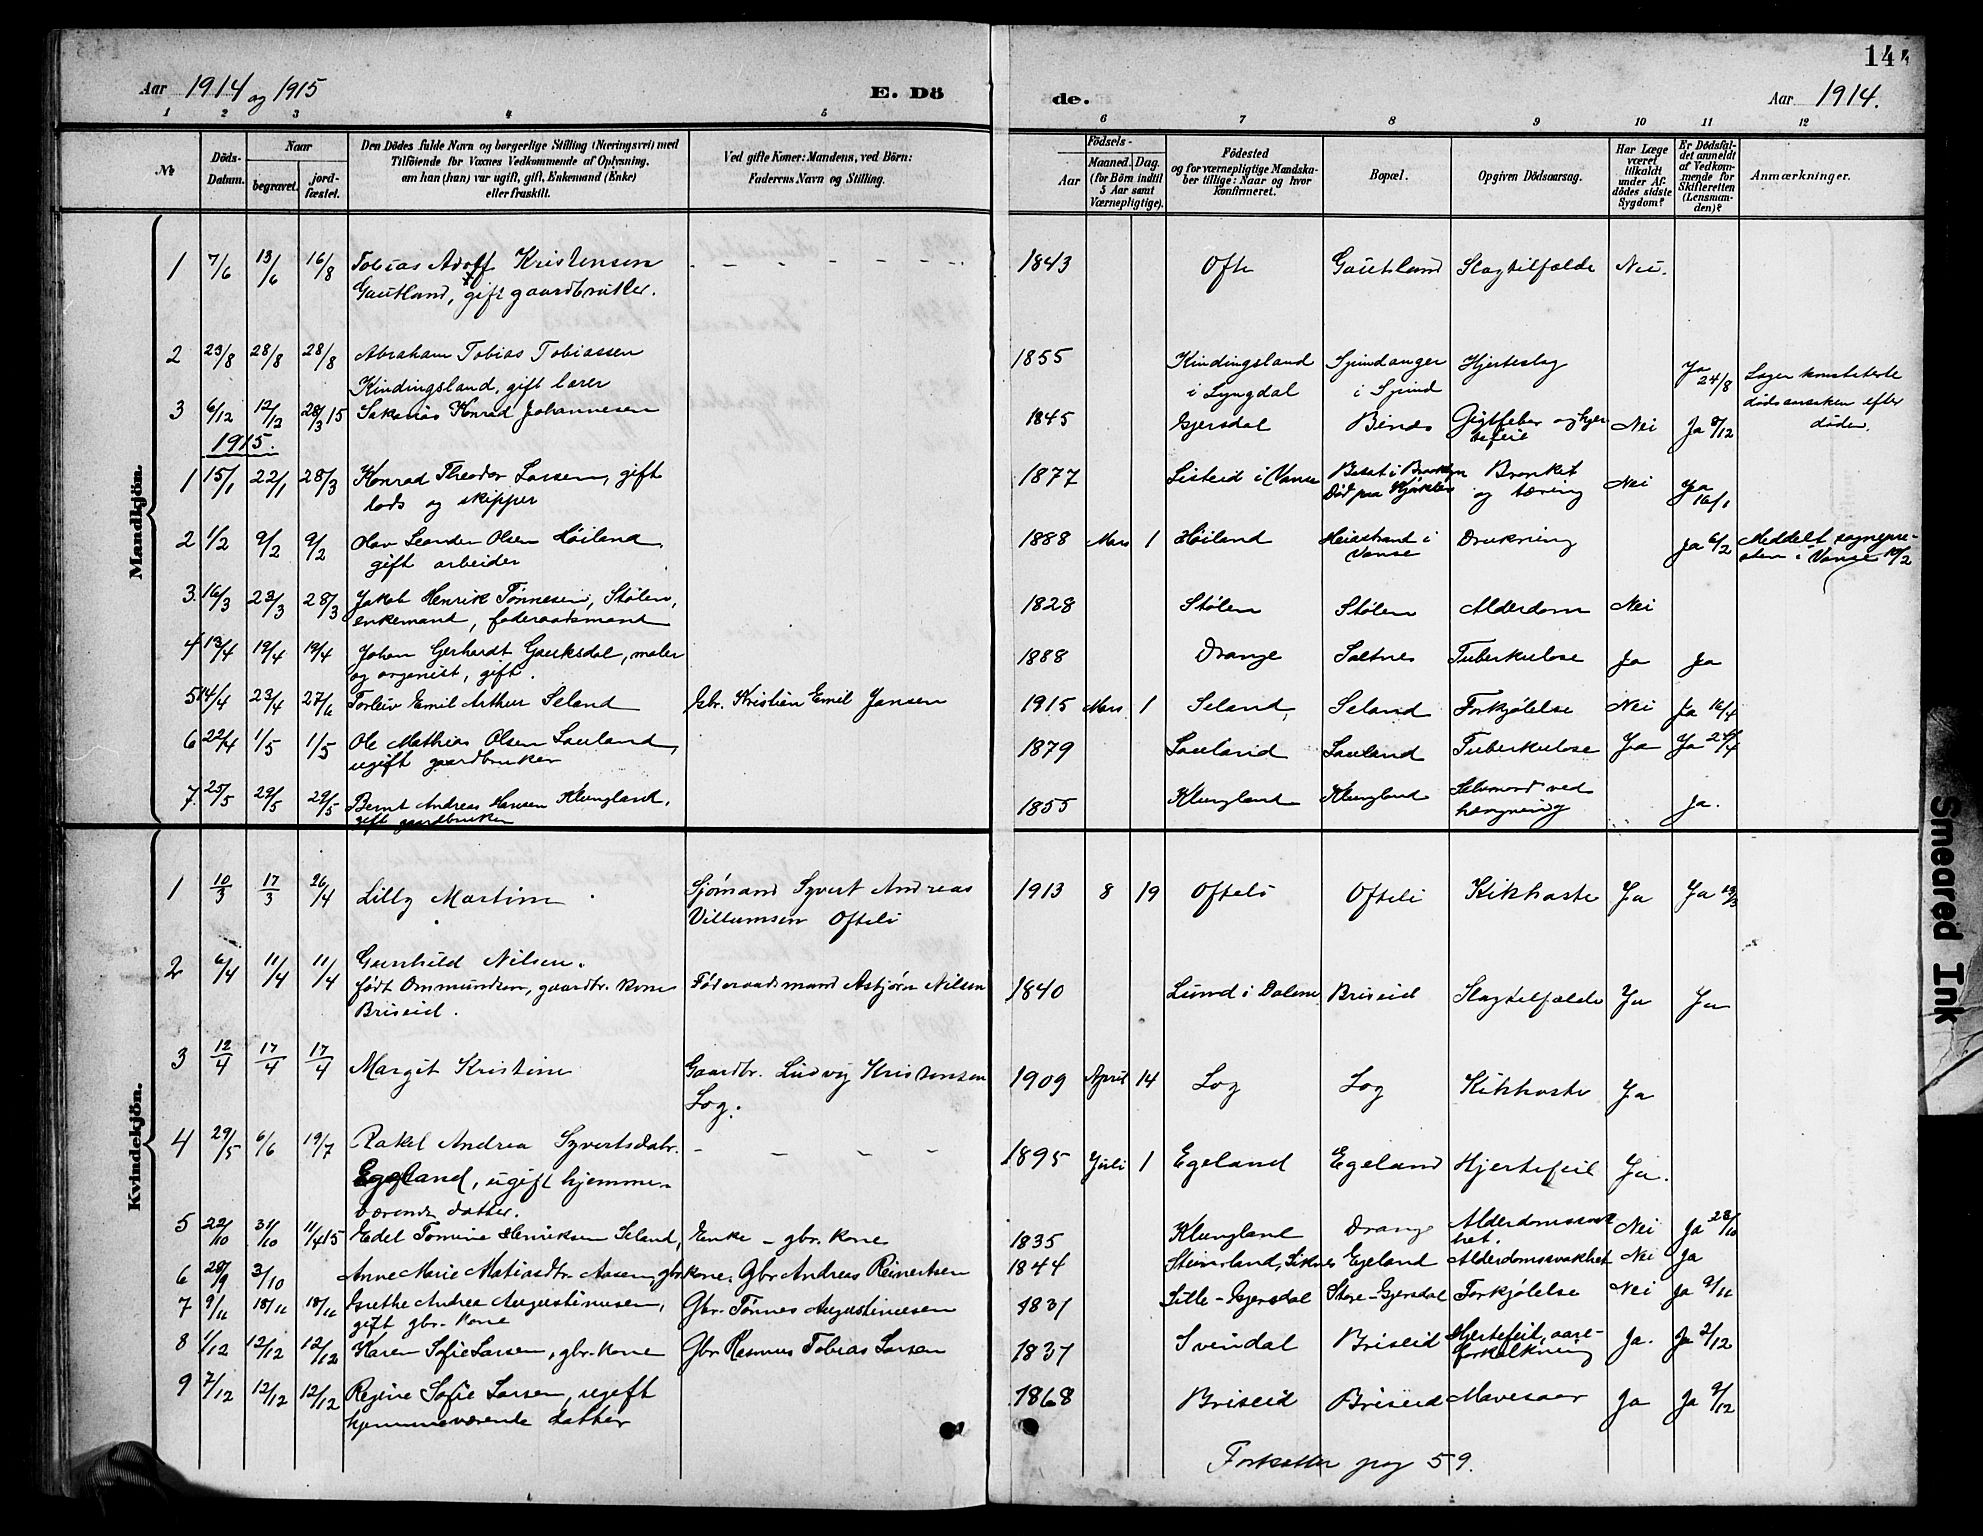 144
Aar 1914 og 1915 E. Dö
de. Aar 1914.
1 2 3 4 5
6 7 8 9 10 11 12
№ Döds-Datum. Naar begravet. jordfæstet. Den Dödes fulde Navn og borgerlige Stilling (Næringsvei) med Tilföiende for Voxnes Vedkommende af Oplysning, om han (hun) var ugift, gift, Enkemand (Enke) eller fraskilt. Ved gifte Koner: Mandens, ved Börn: Faderens Navn og Stilling.
Födsels- Aar Maaned. Dag. (for Börn indtil 5 Aar samt Værnepligtige). Födested og for værnepligtige Mandskaber tillige: Naar og hvor konfirmeret. Bopæl. Opgiven Dödsaarsag. Har Læge været tilkaldt under Afdödes sidste Sygdom? Er Dödsfaldet anmeldt af Vedkommende for Skifteretten (Lensmanden)? Anmærkninger.
Mandkjön.
1 7/6 13/6 16/8 Tobias Adolf Kristensen 1843 Ofte Gautland Slagtilfælde Nei.
Gautland, gift gaardbruker.
2 23/8 28/8 28/8 Abraham Tobias Tobiassen 1855 Kindingsland Spindanger Hjerteslag Ja 24/8 Læger konstaterte
Kindingsland, gift lærer i Lyngdal i Spind dødsaarsaken efter
døden.
3 6/12 12/12 28/3 15 Sakarias Konrad Johannesen 1845 Gjersdal Gigtfeber og hjertefeil Nei Ja 8/12
1915.
1 15/1 22/1 28/3 Konrad Theodor Larsen, gift 1877 Listeid i Vanse Bosat i Brooklyn Bronkit Nei Ja 16/1
lods og skipper Død paa og tæring
2 1/2 9/2 9/2 Olav Leander Olsen Høiland, 1888 Mars 1 Høiland i Vanse Drukning Ja 6/2 Meddelt sognepresten i Vanse 10/2
gift arbeider
3. 16/3 23/3 28/3 Jakob Henrik Tønnesen, Stølen, 1828 Stølen Stølen Alderdom Nei
enkemand, føderaadsmand
4 13/4 19/4 19/4 Johan Gerhardt Gauksdal, maler 1888 Drange Saltnes Tuberkulose Ja Ja
og organist, gift.
5 14/4 23/4 27/6 Torleiv Emil Arthur Seland Gbr. Kristian Emil Jansen 1915 Mars 1 Seland, Seland Forkjølelse Nei Ja 16/4
6 22/4 1/5 1/5 Ole Mathias Olsen Lauland, 1879 Lauland Lauland Tuberkulose Ja Ja 24/4
ugift gaardbruker
7. 25/5 29/5 29/5 Bernt Andreas Hansen Klungland, 1855 Klungland Klungland Selvmord ved Ja.
gift gaardbruker hængning
Kvindekjön.
1 10/3 17/3 26/4 Lilly Martine Sjømand Syvert Andreas 1913 8 19 Oftelö Ofteli Kikhoste Ja Ja 13/3
Villumsen Ofteli
2 6/4 11/4 11/4 Gunhild Nilsen.
født Ommundsen, gaardbr. kone Føderaadsmand Asbjørn Nilsen 1840 Lund i Dalene Briseid Slagtilfælde Ja Ja
Briseid.
3 12/4 17/4 17/4 Margit Kristine Gaardbr. Ludvig Kristensen 1909 April 14 Log Log Kikhoste Ja
Log.
4 29/5 6/6 19/7 Rakel Andrea Syvertsdatr. 1895 Juli 1 Egeland Egeland Hjertefeil Ja.
Egeland, ugift hjemme-
værende datter.
5 22/10 31/10 11/4 15 Edel Tomine Henriksen Seland, Enke – gbr. kone 1835 Klungland Drange Alderdomssvakhet. Nei Ja 28/10
6 28/9 3/10 Anne Marie Matiasdtr Aasen, gbr kone, Gbr Andreas Reinertsen 1844 Steinsland, Liknes Egeland Alderdomssvakhet Nei Ja
7 9/11 18/11 18/11 Grethe Andrea Augustinusen, Gbr. Tønnes Augustinusen 1831 Lille-Gjersdal Store-Gjersdal Forkjølelse Nei Ja 9/11
gift gbr. kone
8 1/12 12/12 12/12 Karen Sofie Larsen, gbr. kone Gbr. Rasmus Tobias Larsen 1837 Svindal Briseid Hjertefeil, aare- Ja. Ja 2/12
forkalkning
9 7/12 12/12 12/12 Regine Sofie Larsen, ugift 1868 Briseid Briseid Mavesaar Ja Ja 9/12
hjemmeværende datter
Forsætter pag 59.
Smeared Ink